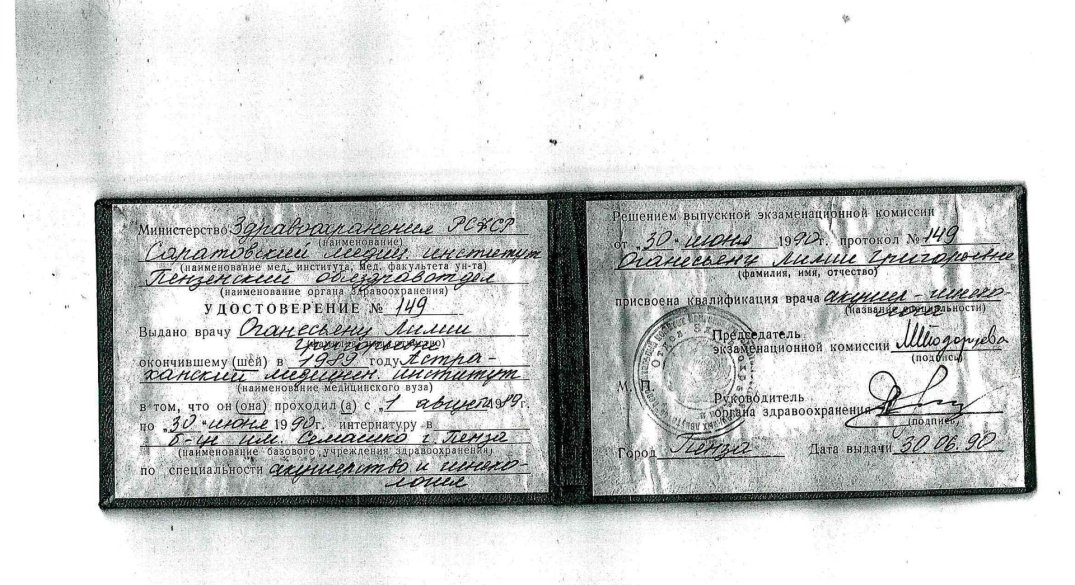 Министерство Здравоохранения РСФСР
(наименование)
Саратовский медиц. институт
(наименование мед. института, мед. факультета ун-та)
Пензенский облздравотдел
(наименование органа здравоохранения)
УДОСТОВЕРЕНИЕ № 149
Выдано врачу Оганесьянц Лилии
Григорьевне
окончившему (шей) в 1989 году Астра-
ханский медицин. институт
(наименование медицинского вуза)
в том, что он (она) проходил (а) с „1 августа 1989г.
по „30“ июня 1990г. интернатуру в
б-це им. Семашко г. Пенза
(наименование базового учреждения здравоохранения)
по специальности акушерство и гинеко-
логия
Решением выпускной экзаменационной комиссии
от „30“ июня 1990г. протокол № 149
Оганесьянц Лилии Григорьевне
(фамилия, имя, отчество)
присвоена квалификация врача акушер-гинеко-
(название специальности)
Председатель
экзаменационной комиссии
(подпись)
М. П.
Руководитель
органа здравоохранения
(подпись)
Город Пенза Дата выдачи 30.06.90